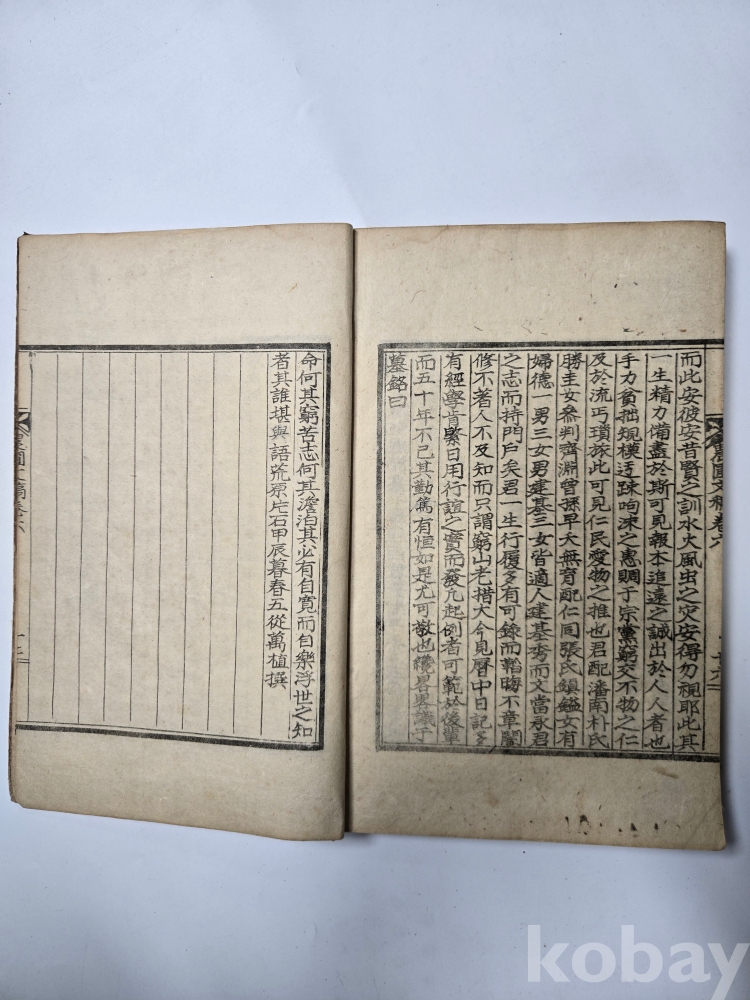 而此安彼安昔賢之訓水火風虫之灾安得勿視耶此其
一生精力備盡於斯可見報本追遠之誠出於人人者也
手力貧拙規模迂踈呴沫之惠賙于宗黨窮交不物之仁
及於流丐瑣旅此可見仁民愛物之推也君配潘南朴氏
勝圭女叅判齊淵曾孫早夭無育配仁同張氏鎮 女有
婦德一男三女男建基三女皆適人建基秀而文當承君
之志而持門戶矣君一生行履多有可錄而韜晦不章闇
修不著人不及知而只謂窮山老措大今見曆中日記多
有經學肯綮日用行誼之實而發凡起例者可範於後輩
而五十年不已其勤篤有恒如是尤可敬也 畧畧識于
墓銘曰
農園文稿卷六
十六
命何其窮苦志何其澹泊其必有自寬而自樂浮世之知
者其誰堪與語荒原片石甲辰暮春五從萬植撰
農園文稿卷六
kobay